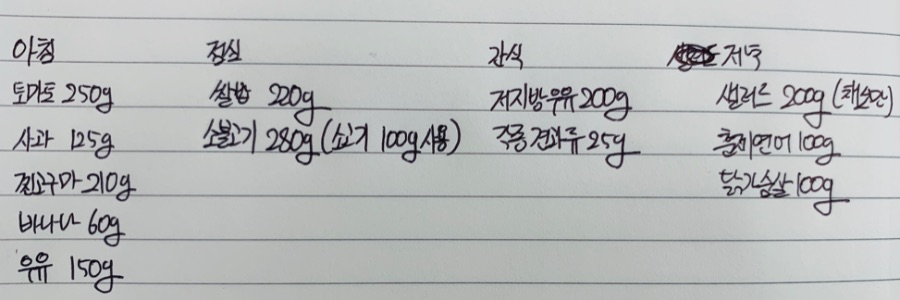 아침
토마토 250g
사과 125g
찐고구마 210g
바나나 60g
우유 150g
점심
쌀밥 220g
소불고기 280g (소고기 100g 사용)
간식
저지방우유 200g
각종견과류 25g
저녁
샐러드 200g (채소만)
훈제연어 100g
닭가슴살 100g